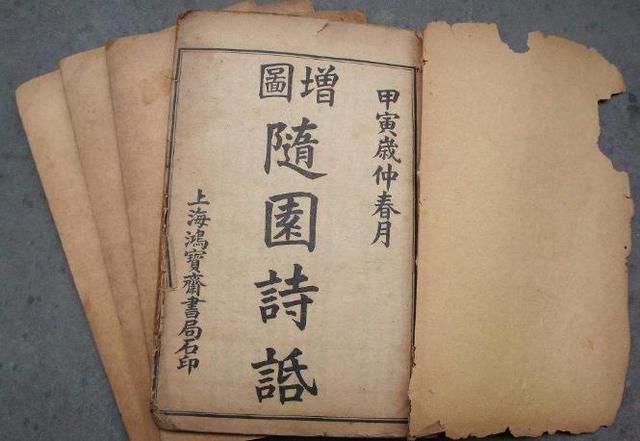 甲寅歲仲春月
增圖
隨園詩話
上海鴻寶齋書局石印